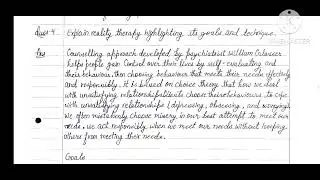 Ques-4 Explain reality therapy highlighting its goals and technique.
Ans Counselling approach developed by psychiatrist William Glasser
helps people gain control over their lives by self-evaluating and
their behaviour, then choosing behaviour that meets their needs effectively
and responsibly. It is based on choice theory that how we deal
with unsatisfying relationships
with unsatisfying relationships (depressing, obsessing, and worrying)
we often mistakenly choose misery in our best attempt to meet our
needs, we act responsibly when we meet our needs without keeping
others from meeting their needs.
Goals